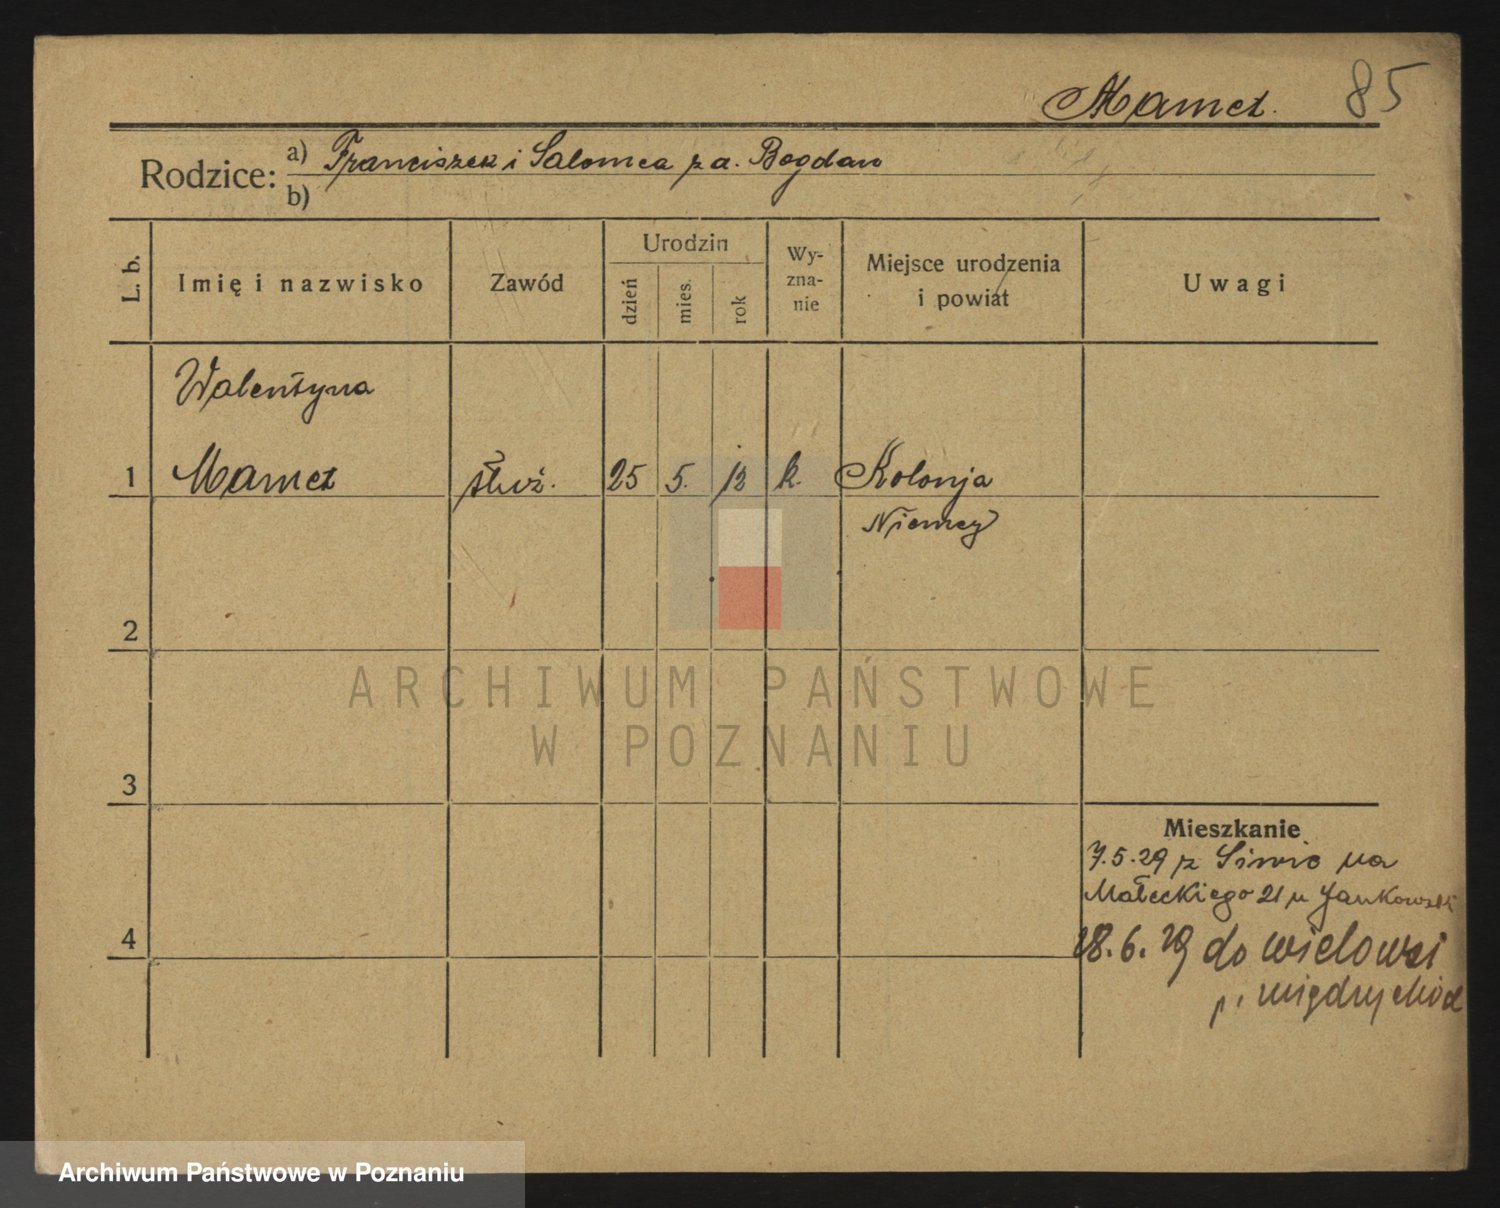 Mamet.
85
Rodzice: a) Franciszek i Salomea z d. Bogdan
b)
L. b. Imię i nazwisko Zawód Urodzin dzień mies. rok Wy-zna-nie Miejsce urodzenia i powiat Uwagi
Walentyna
1 Mamet służ. 25 5. 12 k. Kolonja
Niemcy
2
ARCHIWUM PAŃSTWOWE
W POZNANIU
3
Mieszkanie
7.5.29 z na
Małeckiego 21 u Jankowski
4
28.6.29 do wielowsi
p. międzychód
Archiwum Państwowe w Poznaniu